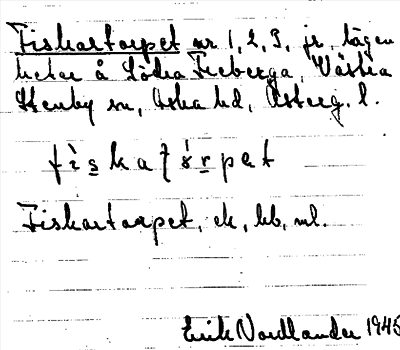 Fiskartorpet nr 1, 2, 3, jr, lägen
heter å Södra Freberga, Västra
Stenby sn, Aska hd, Österg. l.
Fiskartorpet, ek, kb, ml.
Erik Nordlander 1945